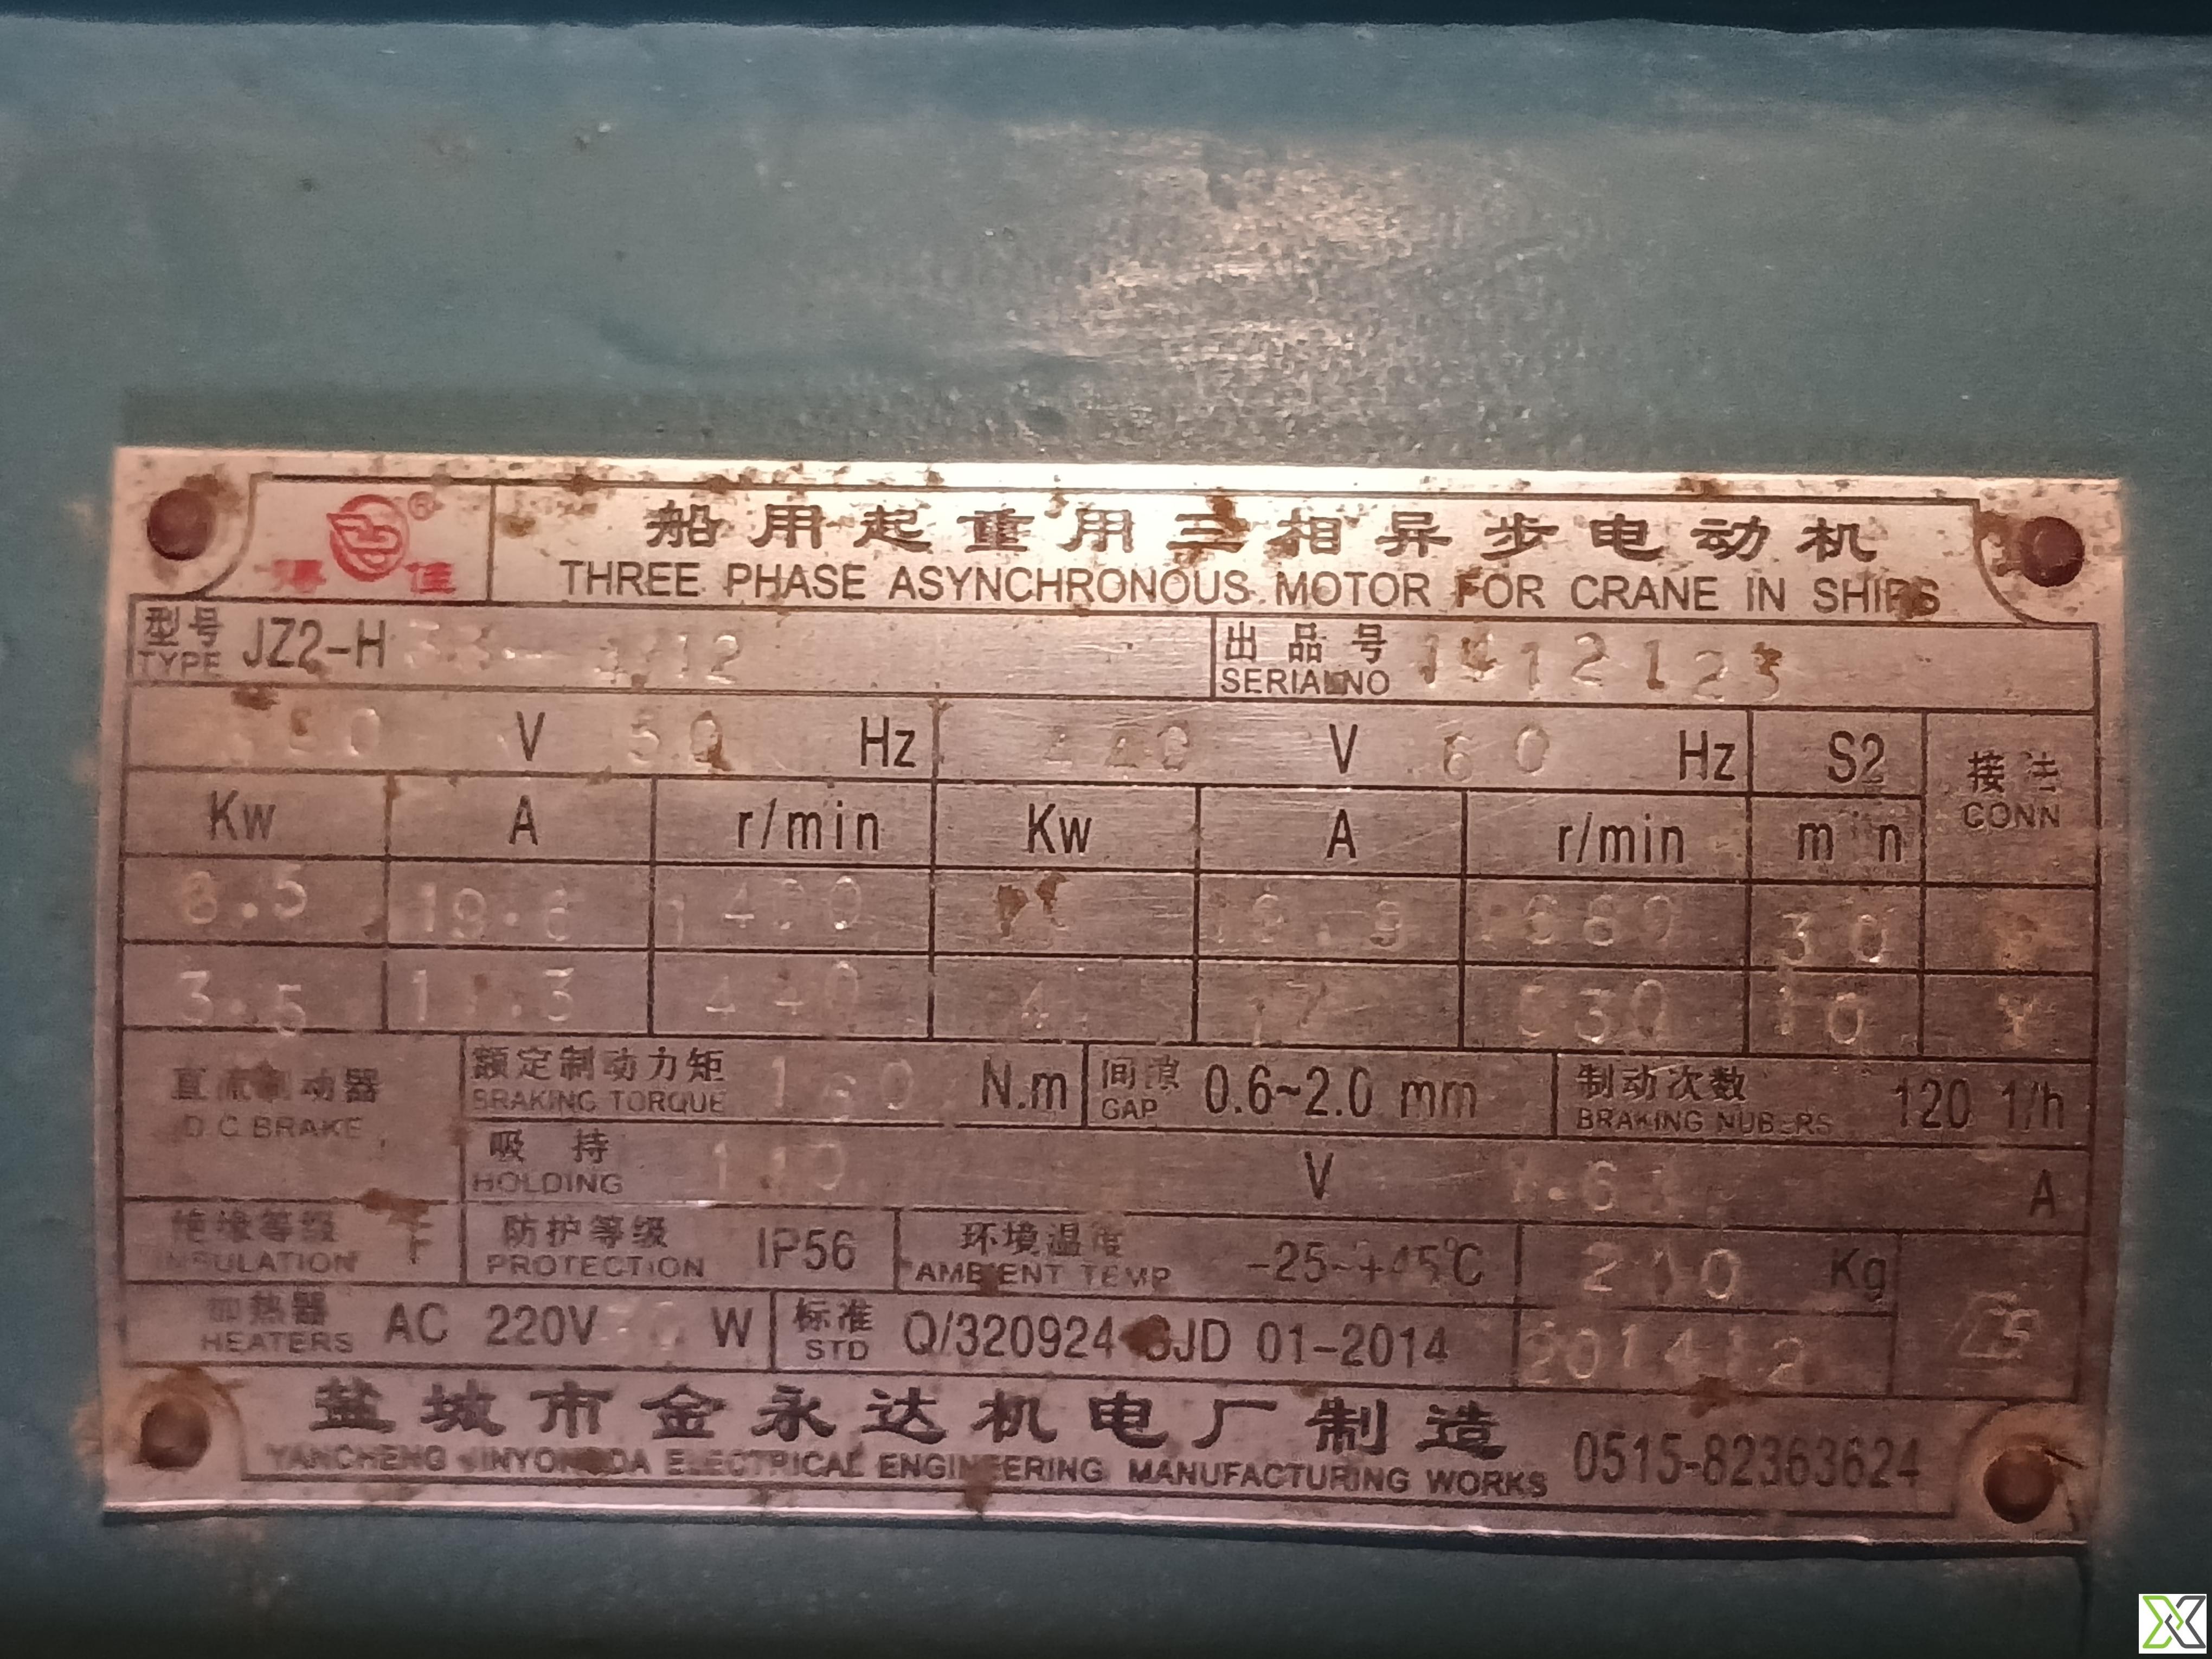 船用起重用三相异步电动机
THREE PHASE ASYNCHRONOUS MOTOR FOR CRANE IN SHIPS
型号 TYPE JZ2-H 出品号 SERIAL NO 1412123
V 50 Hz 440 V 60 Hz S2 接法 CONN
Kw A r/min Kw A r/min min
8.5 1400 30
3.5 440 4 17 10 Y
直流制动器 D.C BRAKE 额定制动力矩 BRAKING TORQUE N.m 间隙 GAP 0.6~2.0 mm 制动次数 BRAKING NUBERS 120 1/h
吸持 HOLDING 110 V A
绝缘等级 INSULATION F 防护等级 PROTECTION IP56 环境温度 AMBIENT TEMP -25~+45°C 210 Kg
加热器 HEATERS AC 220V W 标准 STD Q/320924 JD 01-2014 201412
盐城市金永达机电厂制造 0515-82363624
YANCHENG JINYONGDA ELECTRICAL ENGINEERING MANUFACTURING WORKS